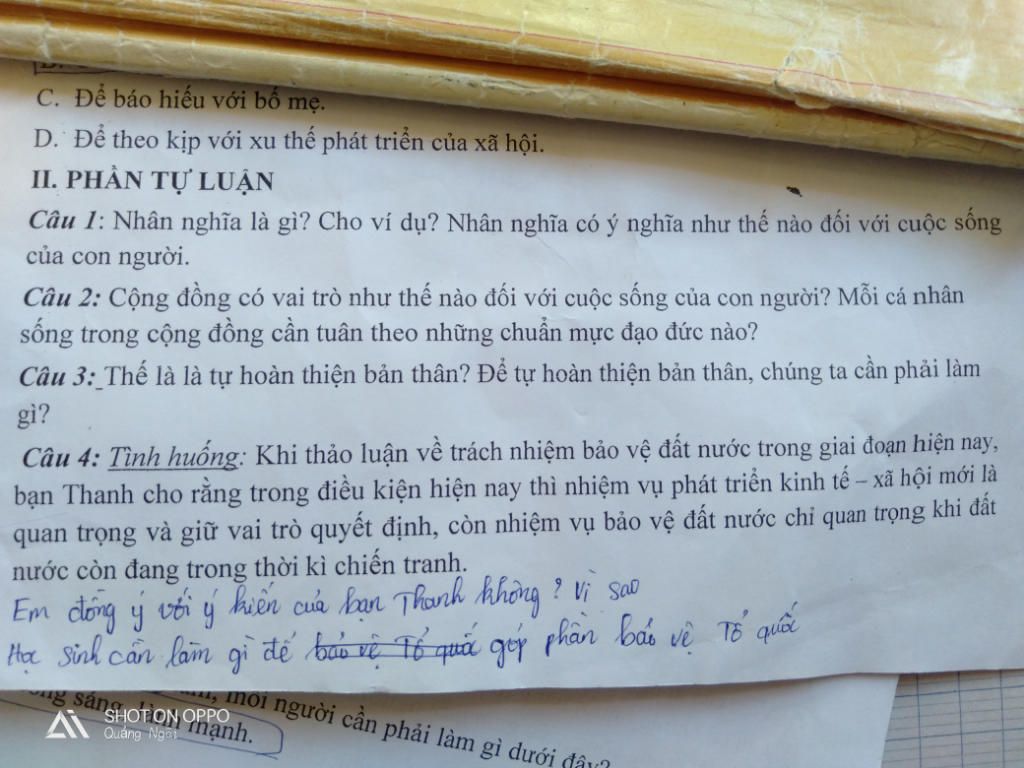 C. Để báo hiếu với bố mẹ.
D. Để theo kịp với xu thế phát triển của xã hội.
II. PHẦN TỰ LUẬN
Câu 1: Nhân nghĩa là gì? Cho ví dụ? Nhân nghĩa có ý nghĩa như thế nào đối với cuộc sống
của con người.
Câu 2: Cộng đồng có vai trò như thế nào đối với cuộc sống của con người? Mỗi cá nhân
sống trong cộng đồng cần tuân theo những chuẩn mực đạo đức nào?
Câu 3: Thế là là tự hoàn thiện bản thân? Để tự hoàn thiện bản thân, chúng ta cần phải làm
gì?
Câu 4: Tình huống: Khi thảo luận về trách nhiệm bảo vệ đất nước trong giai đoạn hiện nay,
bạn Thanh cho rằng trong điều kiện hiện nay thì nhiệm vụ phát triển kinh tế – xã hội mới là
quan trọng và giữ vai trò quyết định, còn nhiệm vụ bảo vệ đất nước chỉ quan trọng khi đất
nước còn đang trong thời kì chiến tranh.
Em đồng ý với ý kiến của bạn Thanh không? Vì sao
Học sinh cần làm gì để bảo vệ Tổ quốc góp phần bảo vệ Tổ quốc
sáng, lành mạnh.
mỗi người cần phải làm gì dưới đây?
SHOT ON OPPO
Quảng Ngãi